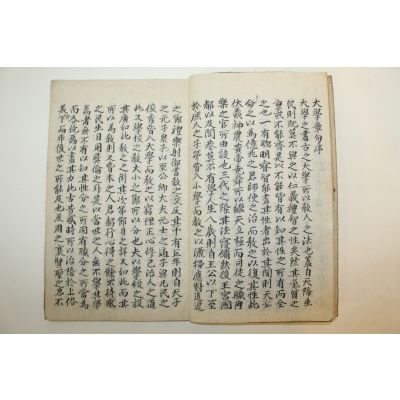 大學章句序
大學之書古之大學所以教人之法也蓋自天降生
民則既莫不與之以仁義禮智之性矣然其氣質之
稟或不能齊是以不能皆有以知其性之所有而全
之也一有聰明睿智能盡其性者出於其間則天必
命之以為億兆之君師使之治而教之以復其性此
伏羲神農黃帝堯舜所以繼天立極而司徒之職典
樂之官所由設也三代之隆其法寖備然後王宮國
都以及閭巷莫不有學人生八歲則自王公以下至
於庶人之子弟皆入小學而教之以灑掃應對進退
之節禮樂射御書數之文及其十有五年則自天子
之元子衆子以至公卿大夫元士之適子與凡民之
俊秀皆入大學而教之以窮理正心修己治人之道
此又學校之教大小之節所以分也夫以學校之設
其廣如此教之之術其次第節目之詳又如此而其
所以為教則又皆本之人君躬行心得之餘不待求
之民生日用彝倫之外是以當世之人無不學其學
焉者無不有以知其性分之所固有職分之所當為
而各俛焉以盡其力此古昔盛時所以治隆於上俗
美於下而非後世之所能及也及周之衰賢聖之君不